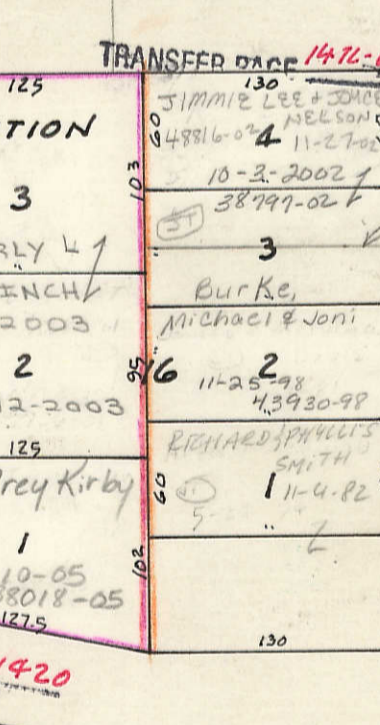 TRANSFER PAGE 1476-
125
TION
103
3
RLY
INCH
2003
95
2
2-2003
125
rey Kirby
1
10-05
8018-05
102
127.5
1420
130
JIMMIE LEE & JOYCE
NELSON
60
48816-02
4
11-27-02
10-3-2002
38797-02
3
Burke,
Michael & Joni
16
2
11-25-98
43930-98
RICHARD & PHYLLIS
SMITH
60
1
11-4-82
5
130